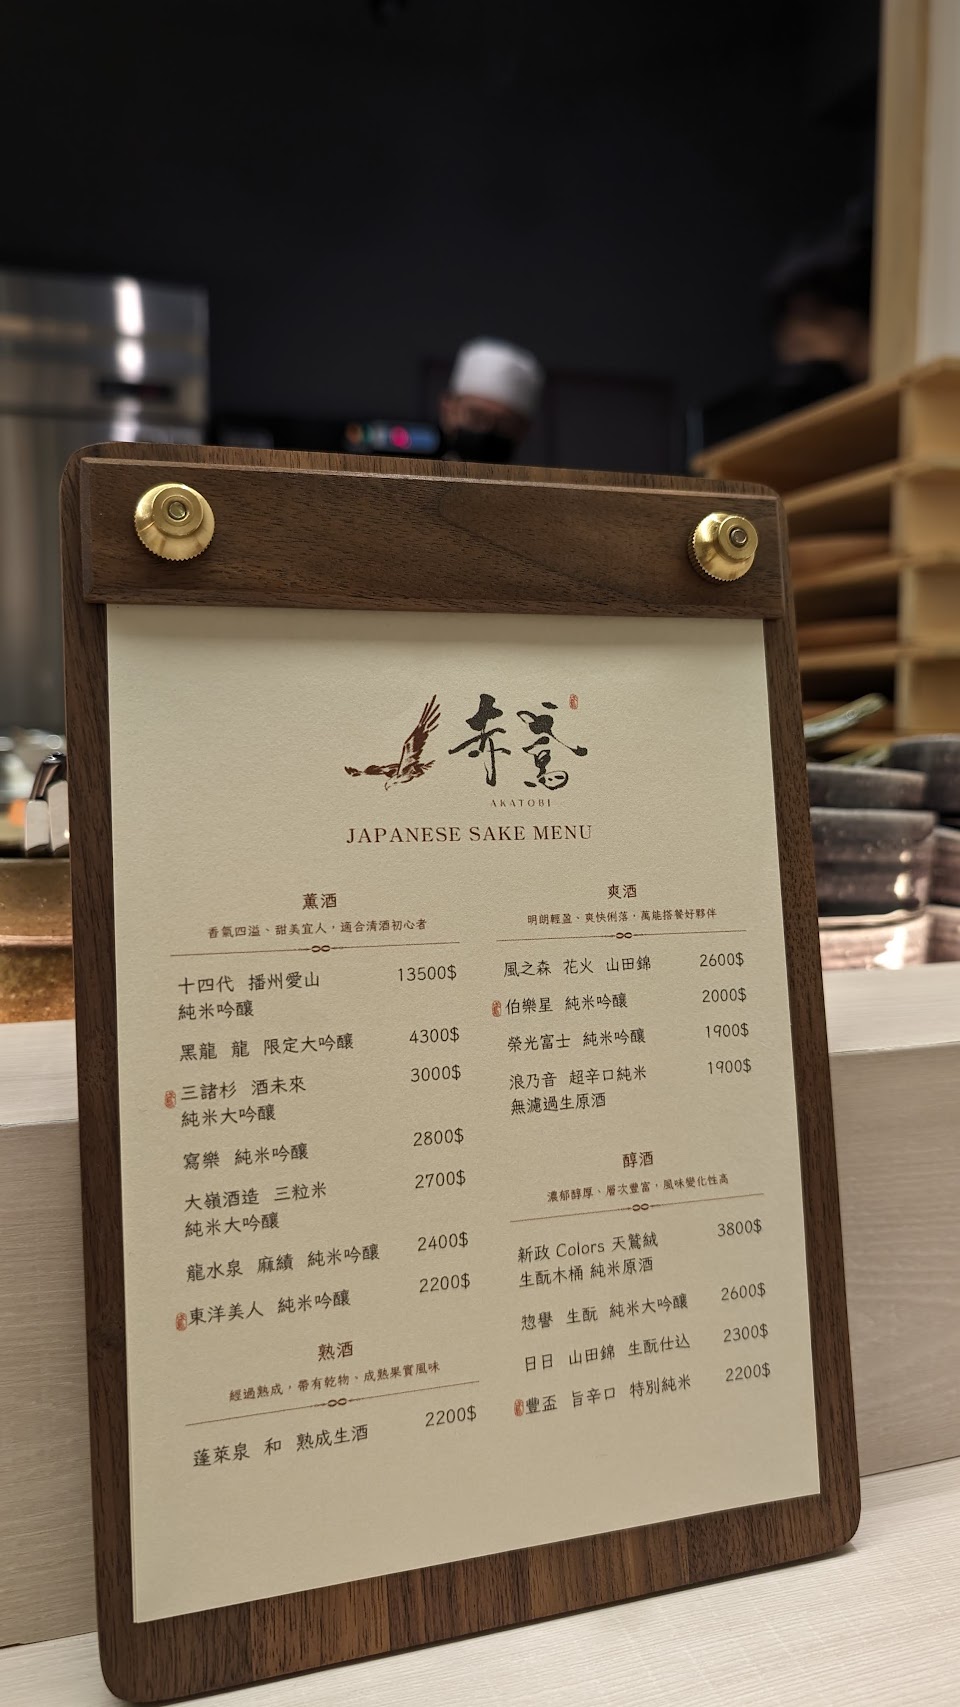 赤鳶
AKATOBI
JAPANESE SAKE MENU
薫酒
香氣四溢、甜美宜人，適合清酒初心者
十四代 播州愛山 13500$
純米吟釀
黑龍 龍 限定大吟釀 4300$
三諸杉 酒未來 3000$
純米大吟釀
寫樂 純米吟釀 2800$
大嶺酒造 三粒米 2700$
純米大吟釀
龍水泉 麻績 純米吟釀 2400$
東洋美人 純米吟釀 2200$
熟酒
經過熟成，帶有乾物、成熟果實風味
蓬萊泉 和 熟成生酒 2200$
爽酒
明朗輕盈、爽快俐落，萬能搭餐好夥伴
風之森 花火 山田錦 2600$
伯樂星 純米吟釀 2000$
榮光富士 純米吟釀 1900$
浪乃音 超辛口純米 1900$
無濾過生原酒
醇酒
濃郁醇厚、層次豐富，風味變化性高
新政 Colors 天鵞絨 3800$
生酛木桶 純米原酒
惣譽 生酛 純米大吟釀 2600$
日日 山田錦 生酛仕込 2300$
豐盃 旨辛口 特別純米 2200$